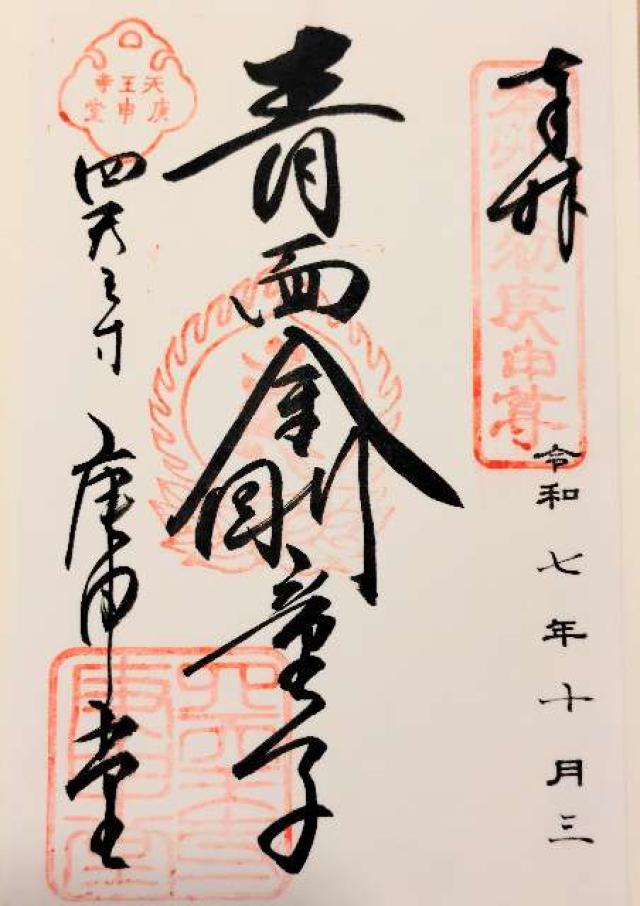 奉拝
庚申尊
令和七年十月三
青面金剛童子
天王寺
庚申堂
四天王寺 庚申堂
四天王寺
庚申堂